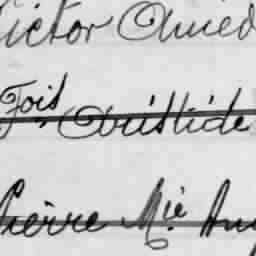 Victor Amed
Fois Aristide
Pierre Mie Aug